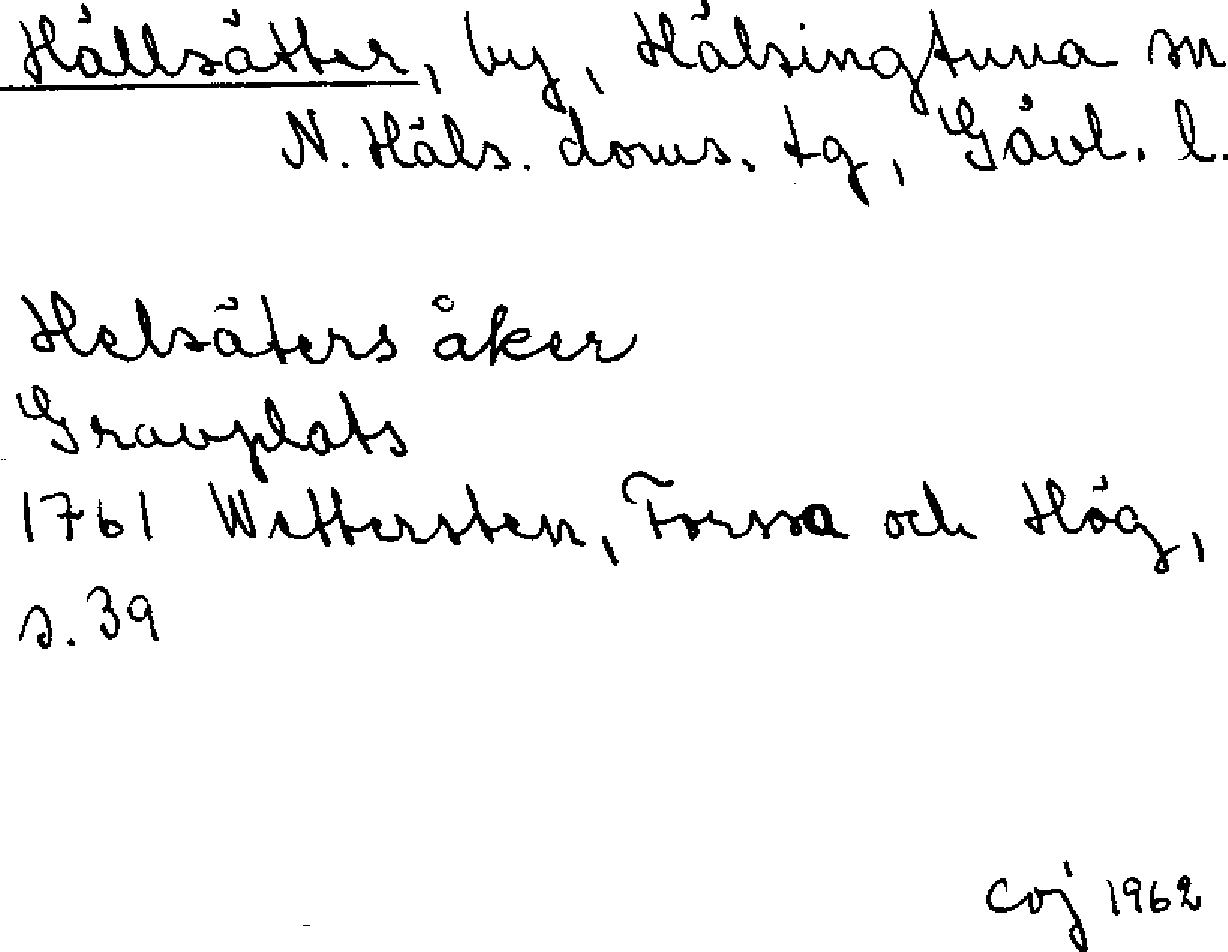 Hällsätter, by, Hälsingtuna sn
N. Häls. doms. tg, Gävl. l.
Helsäters åker
Gravplats
1761 Wettersten, Forssa och Hög,
s. 39
Coj 1962